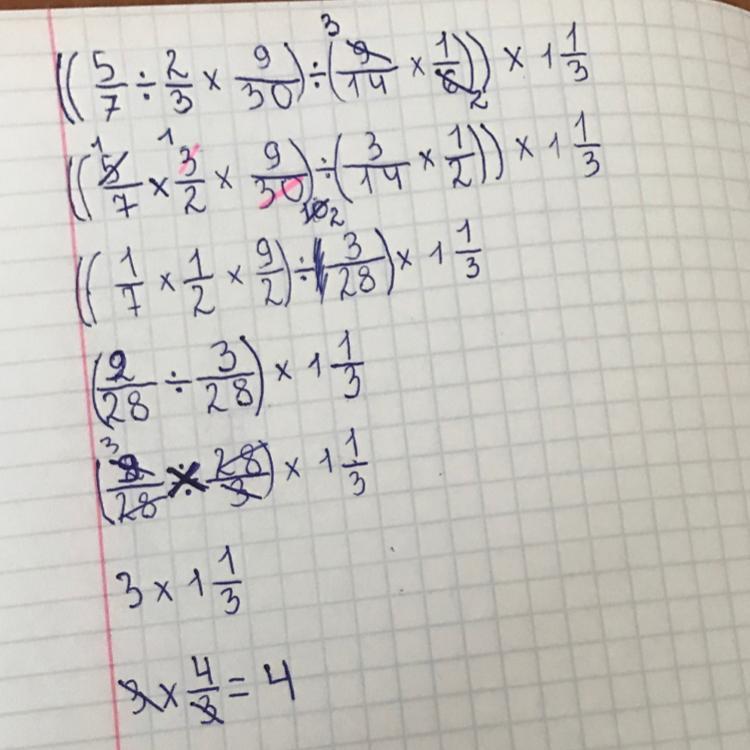 ((5/7 ÷ 2/3 × 9/30) ÷ (9/14 × 1/6)) × 1 1/3 3 2
((5/7 × 3/2 × 9/30) ÷ (3/14 × 1/2)) × 1 1/3 1 1 10 2
((1/7 × 1/2 × 9/2) ÷ 3/28) × 1 1/3
(9/28 ÷ 3/28) × 1 1/3
(9/28 × 28/3) × 1 1/3 3
3 × 1 1/3
3 × 4/3 = 4